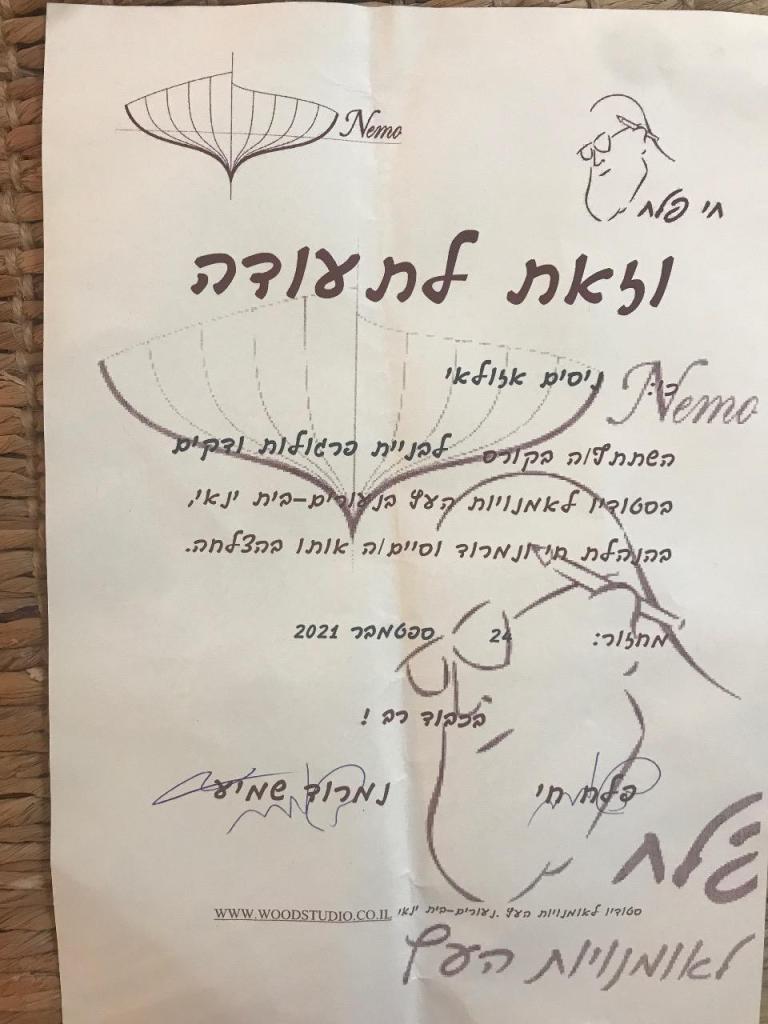 Nemo
חי פלח
וזאת לתעודה
כי: ניסים אזולאי
Nemo
השתתף/ה בקורס לבניית פרגולות ודקים
בסטודיו לאמנויות העץ בנעורים-בית ינאי,
בהנהלת חי ונמרוד וסיים/ה אותו בהצלחה.
מחזור: 24 ספטמבר 2021
בכבוד רב !
פלח חי נמרוד שמיע
פלח
סטודיו לאומנויות העץ .נעורים-בית ינאי WWW.WOODSTUDIO.CO.IL
לאומנויות העץ